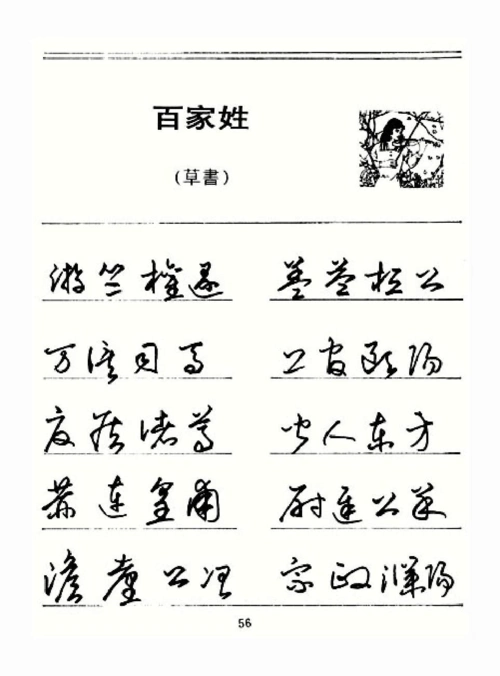 百家姓
(草書)
游竺權逯 蓋益桓公
万俟司马 上官欧阳
夏侯诸葛 闻人东方
赫连皇甫 尉迟公羊
澹臺公冶 宗政濮阳
56